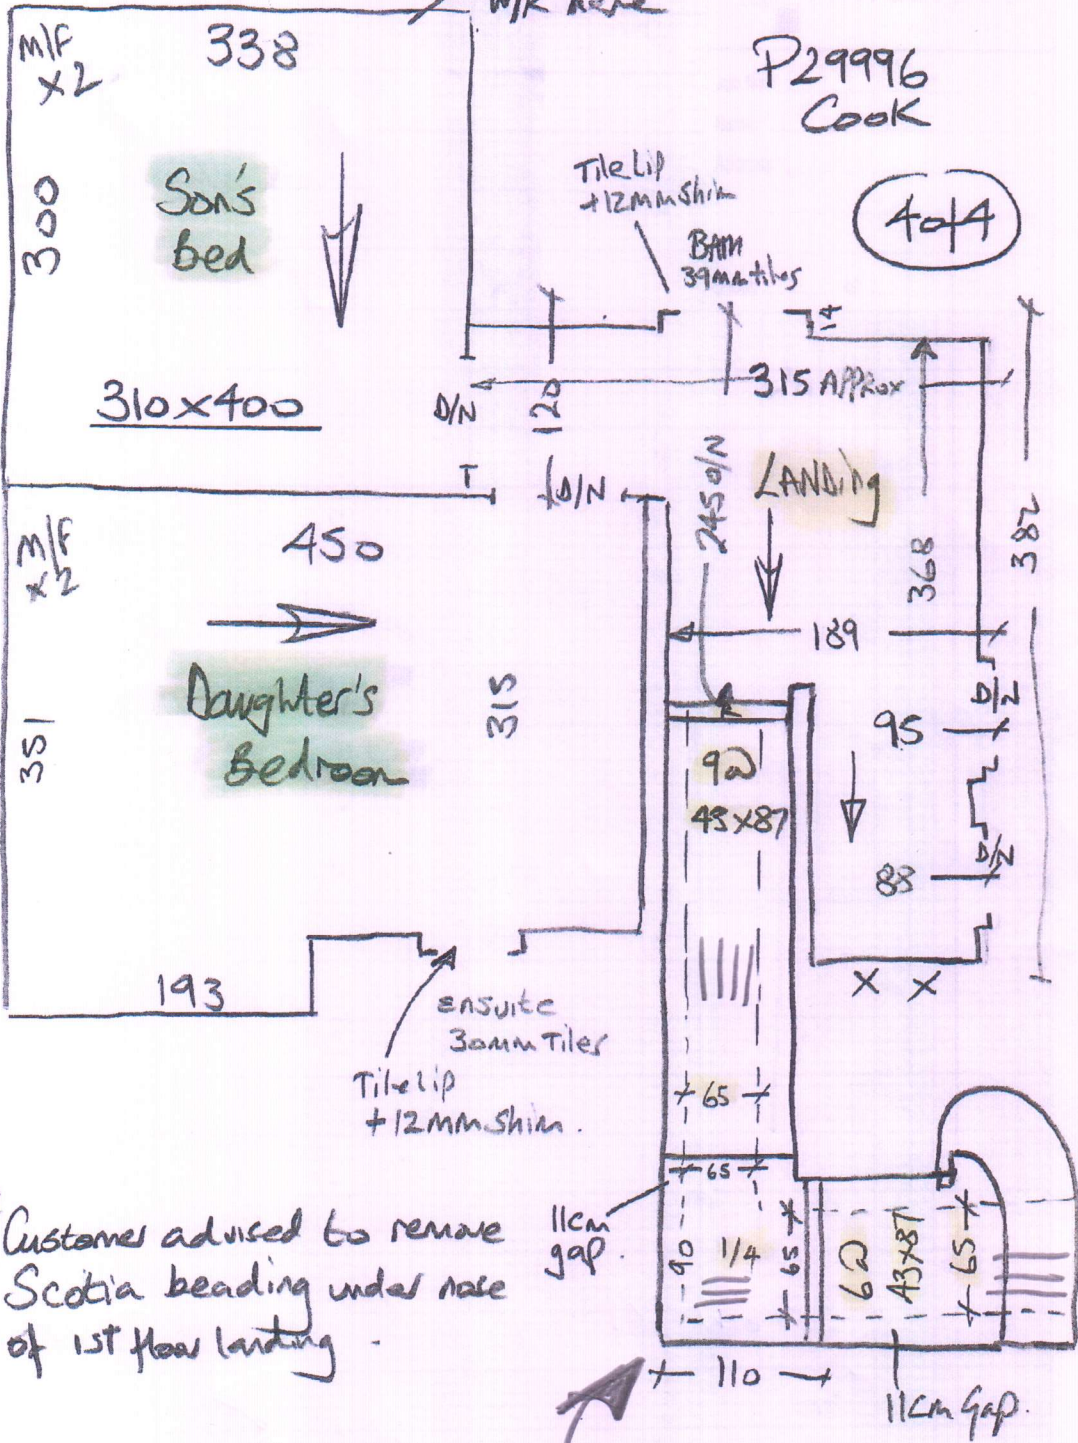 W/R here
M/F
x2
338
P29996
Cook
300
Son's
Bed
Tile Lip
+12mm Shim
BATH
39mm tiles
4of4
14
310x400
D/N
120
315 APPROX
D/N
M/F
x2
450
245 O/N
LANDing
368
382
189
351
Daughter's
Bedroom
315
D/N
95
9@
43x87
D/N
88
193
X X
Ensuite
30mm Tiles
Tile lip
+12mm Shim.
65
65
Customer advised to remove
Scotia beading under nose
of 1st floor landing.
11cm
gap.
90
1/4
65
6@
43x87
65
110
11cm Gap.